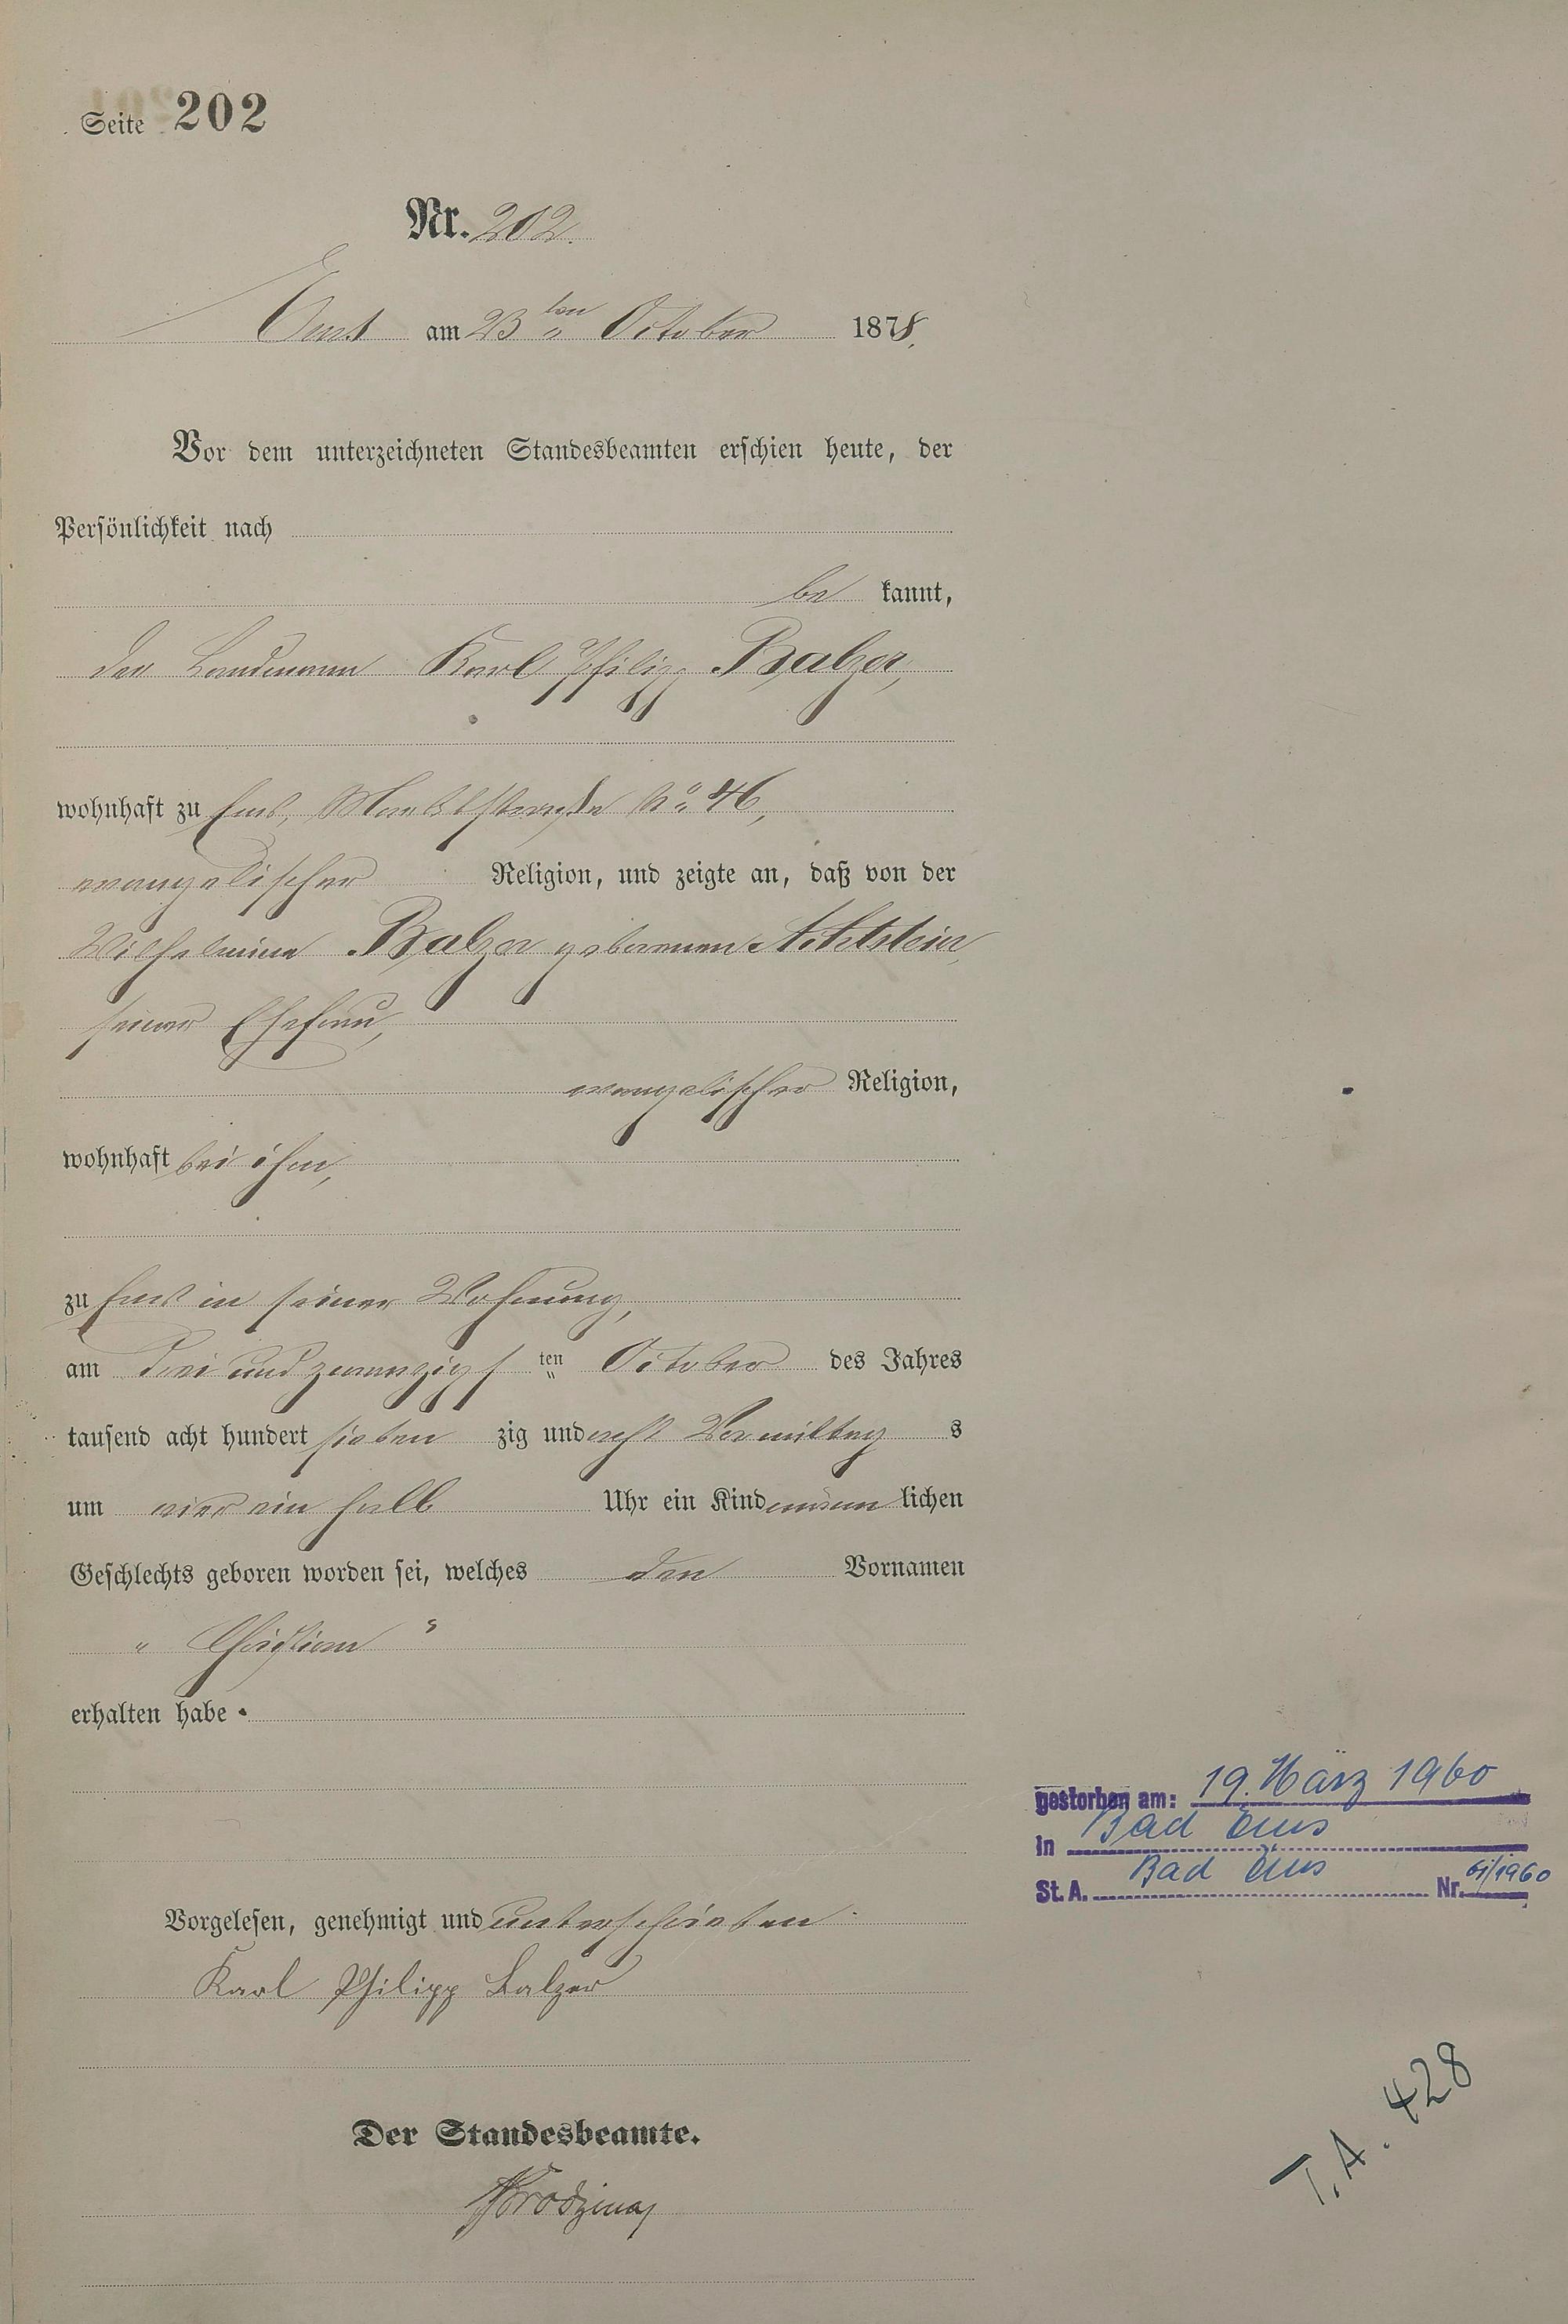 Seite 202
Nr. 202.
Ems am 23ten October 1878.
Vor dem unterzeichneten Standesbeamten erschien heute, der
Persönlichkeit nach
be kannt,
der Landmann Karl Philipp Balzer,
wohnhaft zu Ems, Marktstraße No 46,
evangelischer Religion, und zeigte an, daß von der
Wilhelmine Balzer geborenen
seiner Ehefrau,
evangelischer Religion,
wohnhaft bei ihm,
zu Ems in seiner Wohnung,
am drei und zwanzigsten October des Jahres
tausend acht hundert sieben zig und acht Vormittag s
um vier ein halb Uhr ein Kind männ lichen
Geschlechts geboren worden sei, welches den Vornamen
"Christian"
erhalten habe.
gestorben am: 19. März 1960
in Bad Ems
St. A. Bad Ems Nr. 61/1960
Vorgelesen, genehmigt und unterschrieben
Karl Philipp Balzer
T. A. 428
Der Standesbeamte.